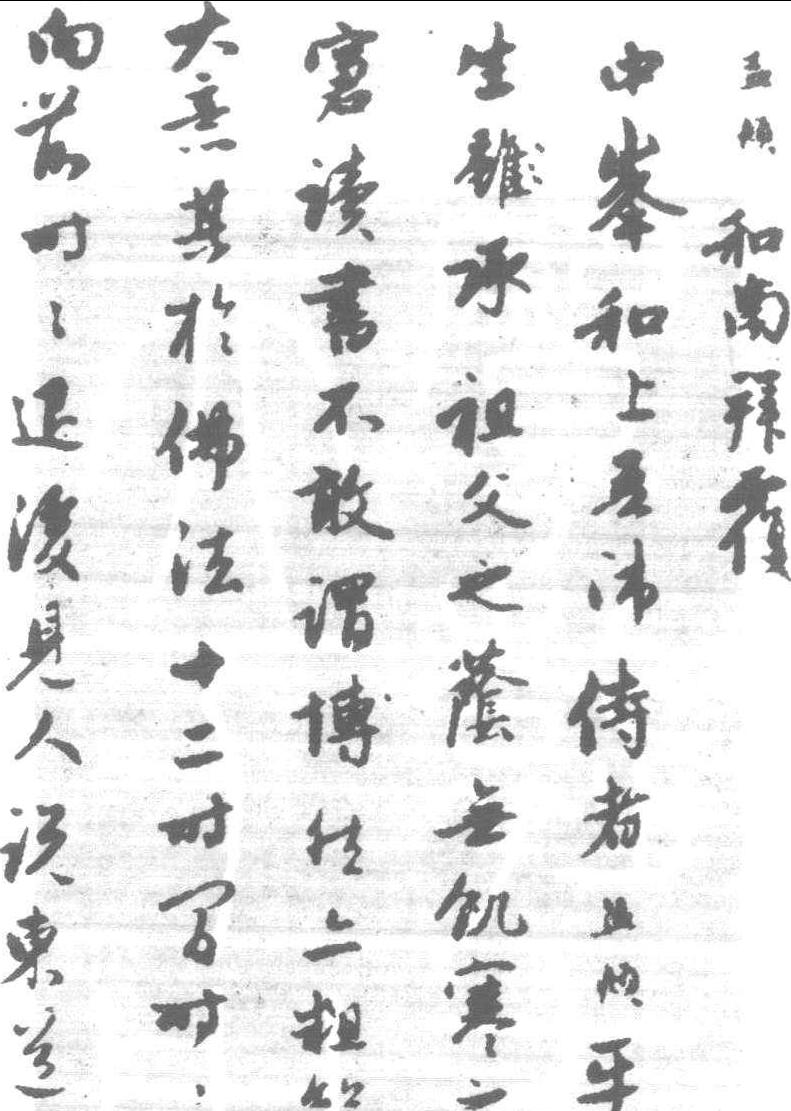 孟頫和南拜覆
中峯和上吾師侍者孟頫平
生雖承祖父之蔭無飢寒之
窘讀書不敢謂博然亦粗
大意其於佛法十二时间时〻
向前时〻退後見人说東道